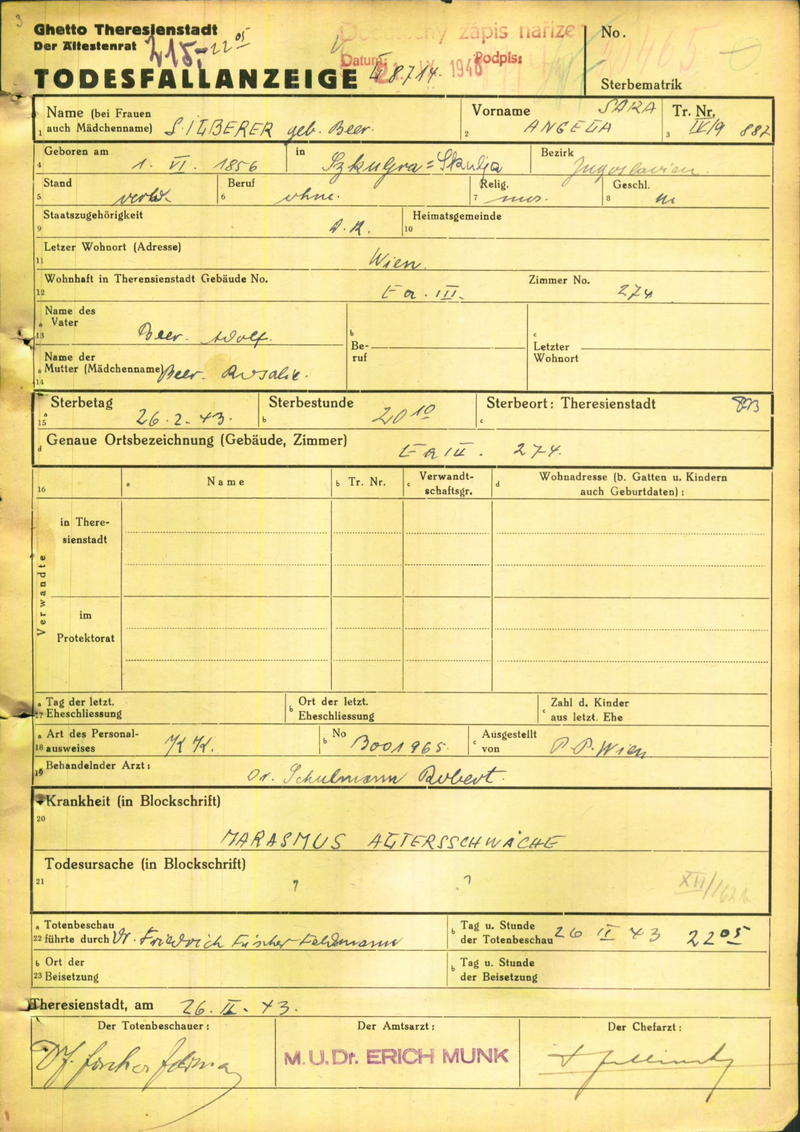 3
Ghetto Theresienstadt
Der Ältestenrat 215,- 22 05
Dodatečný zápis nařízen
Datum: 1946 Podpis:
TODESFALLANZEIGE 8714.
No.
Sterbematrik
Name (bei Frauen auch Mädchenname) SILBERER geb. Beer.
1
Vorname SARA
2 ANGELA
Tr. Nr.
3 IV/9 887
Geboren am
4 1. VI. 1856
in Szkulya = Skulja
Bezirk Jugoslavien.
Stand
5 verw.
Beruf
6 ohne.
Relig.
7 mos.
Geschl.
8 w
Staatszugehörigkeit
9 D.R.
Heimatsgemeinde
10
Letzer Wohnort (Adresse)
11 Wien.
Wohnhaft in Therensienstadt Gebäude No.
12 Ea. III.
Zimmer No. 274
Name des
a Vater
13 Beer. Adolf.
b
Be-
ruf
c
Letzter
Wohnort
Name der
a Mutter (Mädchenname) Beer. Rosalie.
14
Sterbetag
a
15 26.2.43.
Sterbestunde
b 20 10
Sterbeort: Theresienstadt
c
d Genaue Ortsbezeichnung (Gebäude, Zimmer)
Ea III. 274.
16
a Name
b Tr. Nr.
c Verwandt-
schaftsgr.
d Wohnadresse (b. Gatten u. Kindern
auch Geburtdaten) :
Verwandte
in There-
sienstadt
im
Protektorat
a Tag der letzt.
17 Eheschliessung
b Ort der letzt.
Eheschliessung
c Zahl d. Kinder
aus letzt. Ehe
a Art des Personal-
18 ausweises KK.
b No B001965.
c Ausgestellt
von P.P. Wien
19 Behandelnder Arzt: Dr. Schulmann Robert.
Krankheit (in Blockschrift)
20
MARASMUS ALTERSSCHWÄCHE
Todesursache (in Blockschrift)
21 XII/162b
a Totenbeschau
22 führte durch Dr. Friedrich Fischer Feldmann
b Tag u. Stunde
der Totenbeschau 26 II 43 22 05
b Ort der
23 Beisetzung
b Tag u. Stunde
der Beisetzung
Theresienstadt, am 26. II. 43.
Der Totenbeschauer:
Der Amtsarzt:
Der Chefarzt:
M.U.Dr. ERICH MUNK